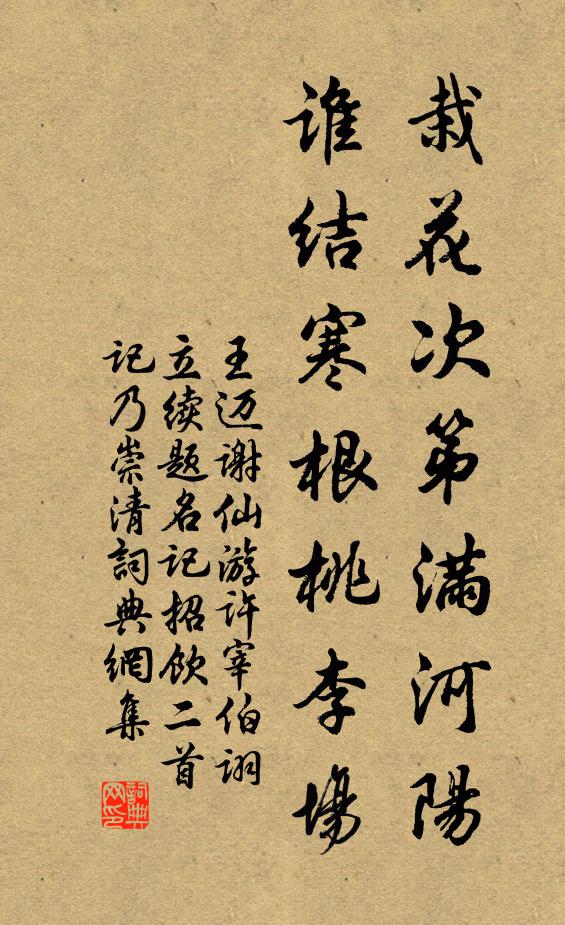 栽花次第满河陽
谁结寒根桃李場
王迈谢仙游许宰伯詡
立续题名记招饮二首
记乃崇清詞典網集
詞典网印